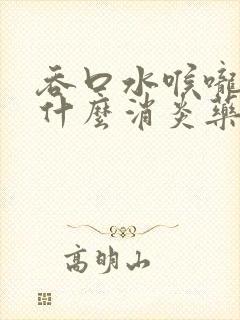 吞口水喉嚨
什麼消炎藥
高明山